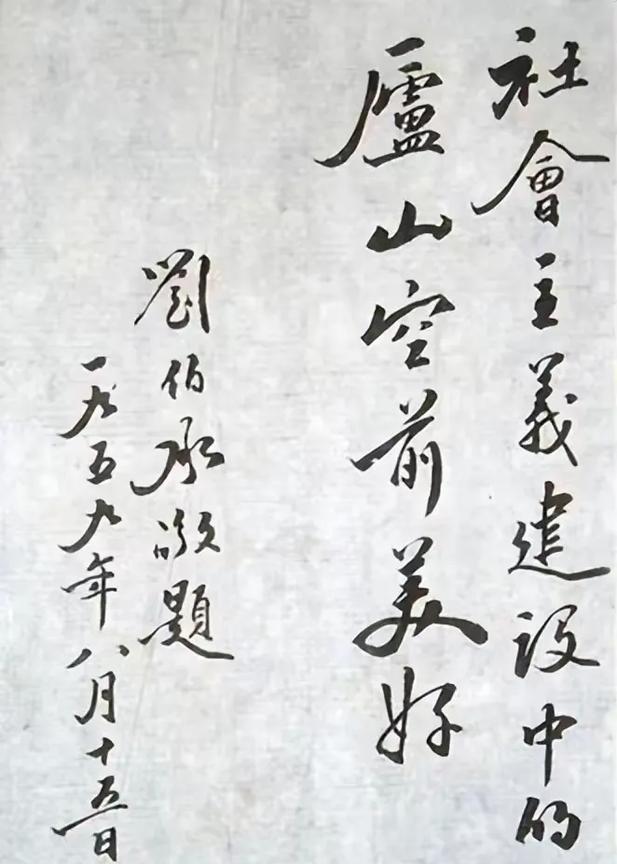 社會主義建設中的
廬山空前美好
劉伯承敬題
一九五九年八月十五日